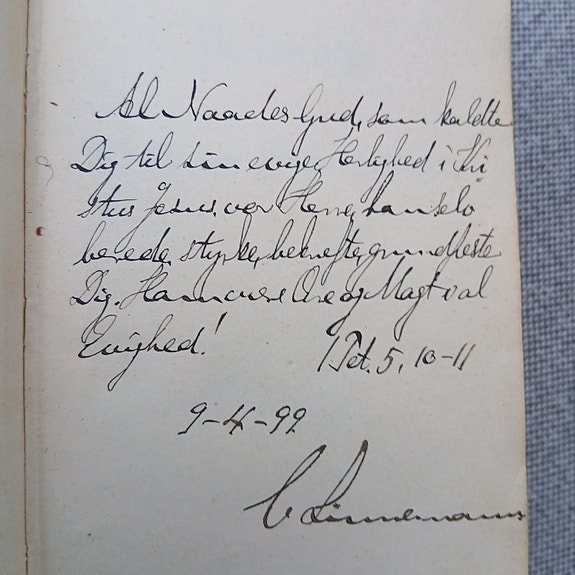 Al Naades Gud, som kaldte
Dig til sin evige Herlighed i Kri
stus Jesus, vor Herre, han selv
berede, styrke, bekræfte, grundfæste
Dig. Ham være Ære og Magt i al
Evighed!
1 Pet. 5, 10-11
9-4-99
C Linnemann